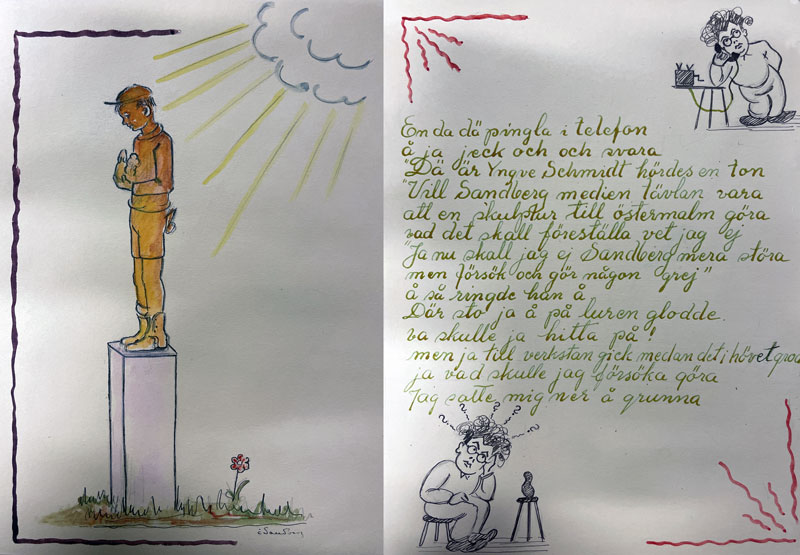 E Sandberg
En da dä pingla i telefon
å ja jeck och och svara
"Dä är Yngve Schmidt hördes en ton
"Vill Sandberg medien tävlan vara
att en skulptur till östermalm göra
vad det skall föreställa vet jag ej
"Ja nu skall jag ej Sandberg mera störa
men försök och gör någon grej"
å så ringde han å
Där sto ja å på luren glodde.
va skulle ja hitta på!
men ja till verkstan gick medan det i hövet grod
ja vad skulle jag försöka göra
Jag satte mig ner å grunna
? ? ? ? ?